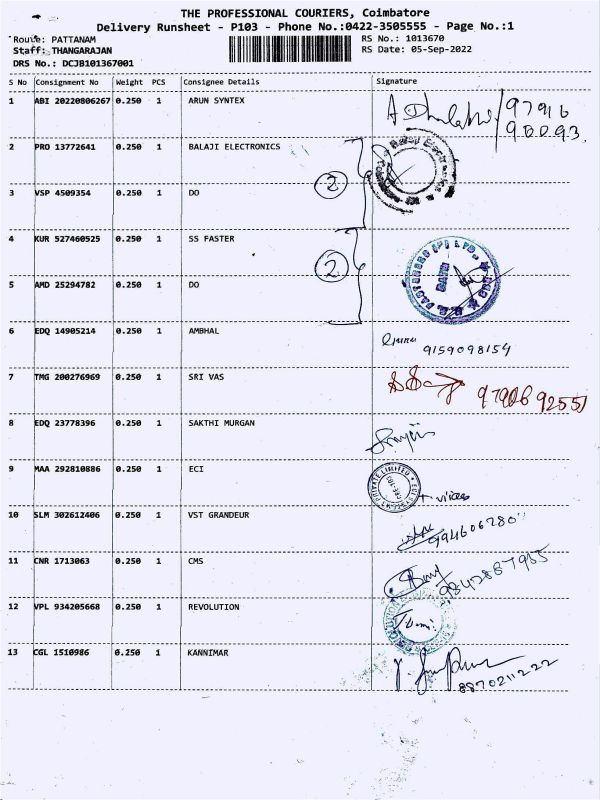 THE PROFESSIONAL COURIERS, Coimbatore
Delivery Runsheet - P103 - Phone No.:0422-3505555 - Page No.:1
Route: PATTANAM RS No.: 1013670
Staff: THANGARAJAN RS Date: 05-Sep-2022
DRS No.: DCJB101367001
S No Consignment No Weight PCS Consignee Details Signature
1 ABI 20220806267 0.250 1 ARUN SYNTEX
2 PRO 13772641 0.250 1 BALAJI ELECTRONICS
2
3 VSP 4509354 0.250 1 DO
4 KUR 527460525 0.250 1 SS FASTER
2
DATE
5 AMD 25294782 0.250 1 DO
6 EDQ 14905214 0.250 1 AMBHAL
9159098154
7 TMG 200276969 0.250 1 SRI VAS
8 EDQ 23778396 0.250 1 SAKTHI MURGAN
9 MAA 292810886 0.250 1 ECI
PRIVATE LIMITED
10 SLM 302612406 0.250 1 VST GRANDEUR
11 CNR 1713063 0.250 1 CMS
12 VPL 934205668 0.250 1 REVOLUTION
13 CGL 1510986 0.250 1 KANNIMAR